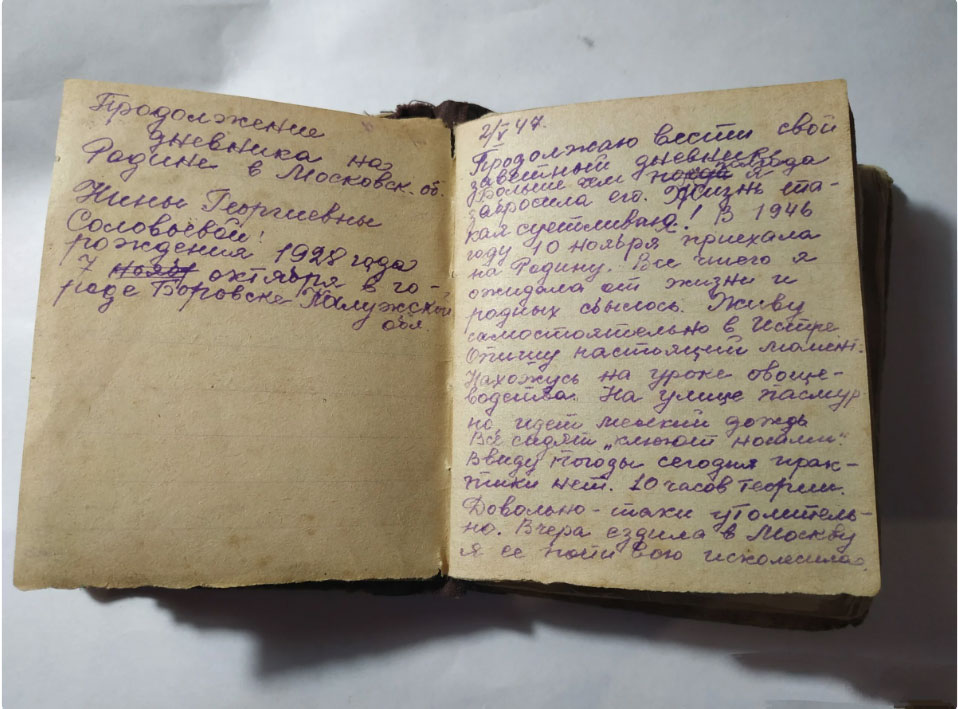 Продолжение
дневника на
Родине в Московск. об.
Нины Георгиевны
Соловьевой!
рождения 1928 года
7 ноября октября в го-
роде Боровске Калужской
обл
2/V 47.
Продолжаю вести свой
заветный дневник.
Больше чем полгода я
забросила его. Жизнь та-
кая суетливая! В 1946
году 10 ноября приехала
на Родину. Все чего я
ожидала от жизни и
родных сбылось. Живу
самостоятельно в Истре
Опишу настоящий момент.
Нахожусь на уроке овоще-
водства. На улице пасмур
но идет мелкий дождь
Все сидят „клюют носами".
Ввиду погоды сегодня прак-
тики нет. 10 часов теории.
Довольно-таки утомитель-
но. Вчера ездила в Москву
я ее почти всю исколесила.